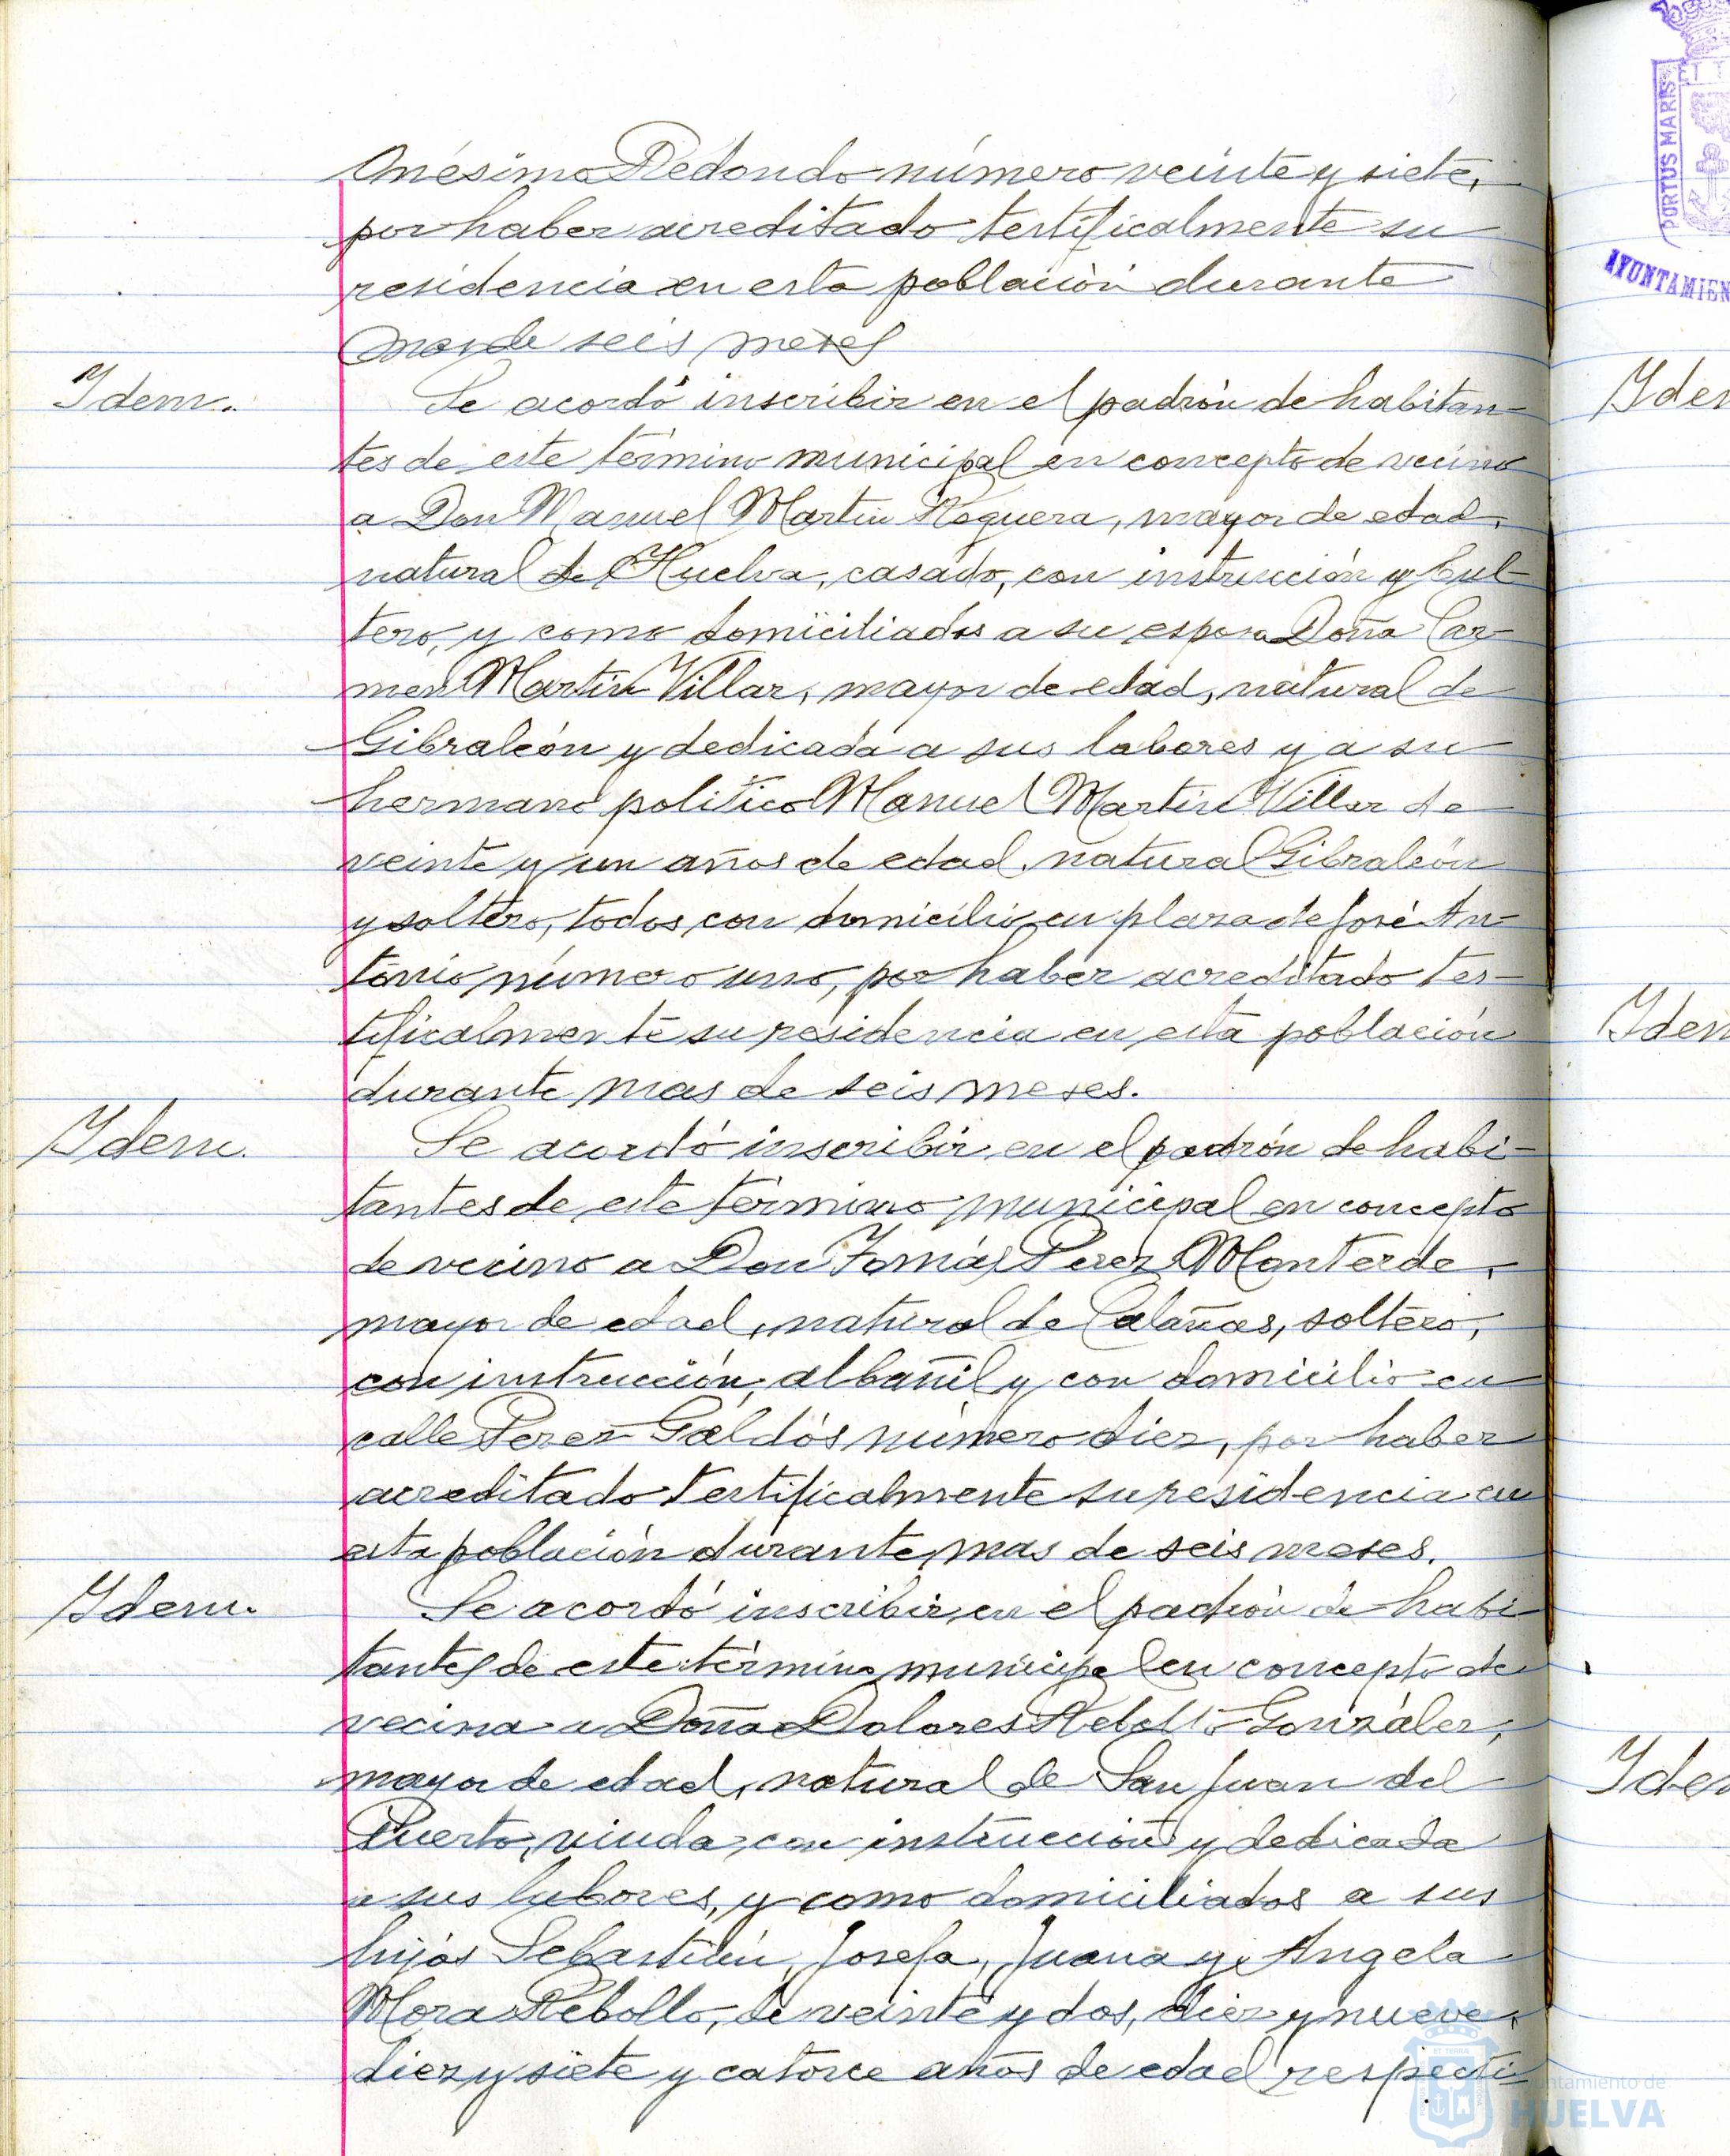 Onésimo Redondo número veinte y siete,
por haber acreditado testificalmente su
residencia en esta población durante
mas de seis meses
Idem.
Se acordó inscribir en el padrón de habitan-
tes de este término municipal en concepto de vecino
a Don Manuel Martin Noguera, mayor de edad,
natural de Huelva, casado, con instrucción y
tero, y como domiciliados a su esposa Doña Car-
men Martin Villar, mayor de edad, natural de
Gibraleón y dedicada a sus labores y a su
hermano politico Manuel Martin Villar de
veinte y un años de edad, natural Gibraleón
y soltero, todos con domicilio en plaza de José An-
tonio número uno, por haber acreditado tes-
tificalmente su residencia en esta población
durante mas de seis meses.
Idem.
Se acordó inscribir en el padrón de habi-
tantes de este término municipal en concepto
de vecino a Don Tomás Perez Monterde,
mayor de edad, natural de Calañas, soltero,
con instrucción, albañil y con domicilio en
calle Perez Galdós número diez, por haber
acreditado testificalmente su residencia en
esta población durante mas de seis meses.
Idem.
Se acordó inscribir en el padrón de habi-
tantes de este término municipal en concepto de
vecina a Doña Dolores Rebollo González,
mayor de edad, natural de San Juan del
Puerto, viuda, con instrucción y dedicada
a sus labores, y como domiciliados a sus
hijos Sebastián, Josefa, Juana y Angela
Mora Rebollo, de veinte y dos, diez y nueve,
diez y siete y catorce años de edad respecti-
PORTUS MARIS
ET T
AYUNTAMIEN
Iden
Iden
Iden
ET TERRA
Ayuntamiento de
HUELVA